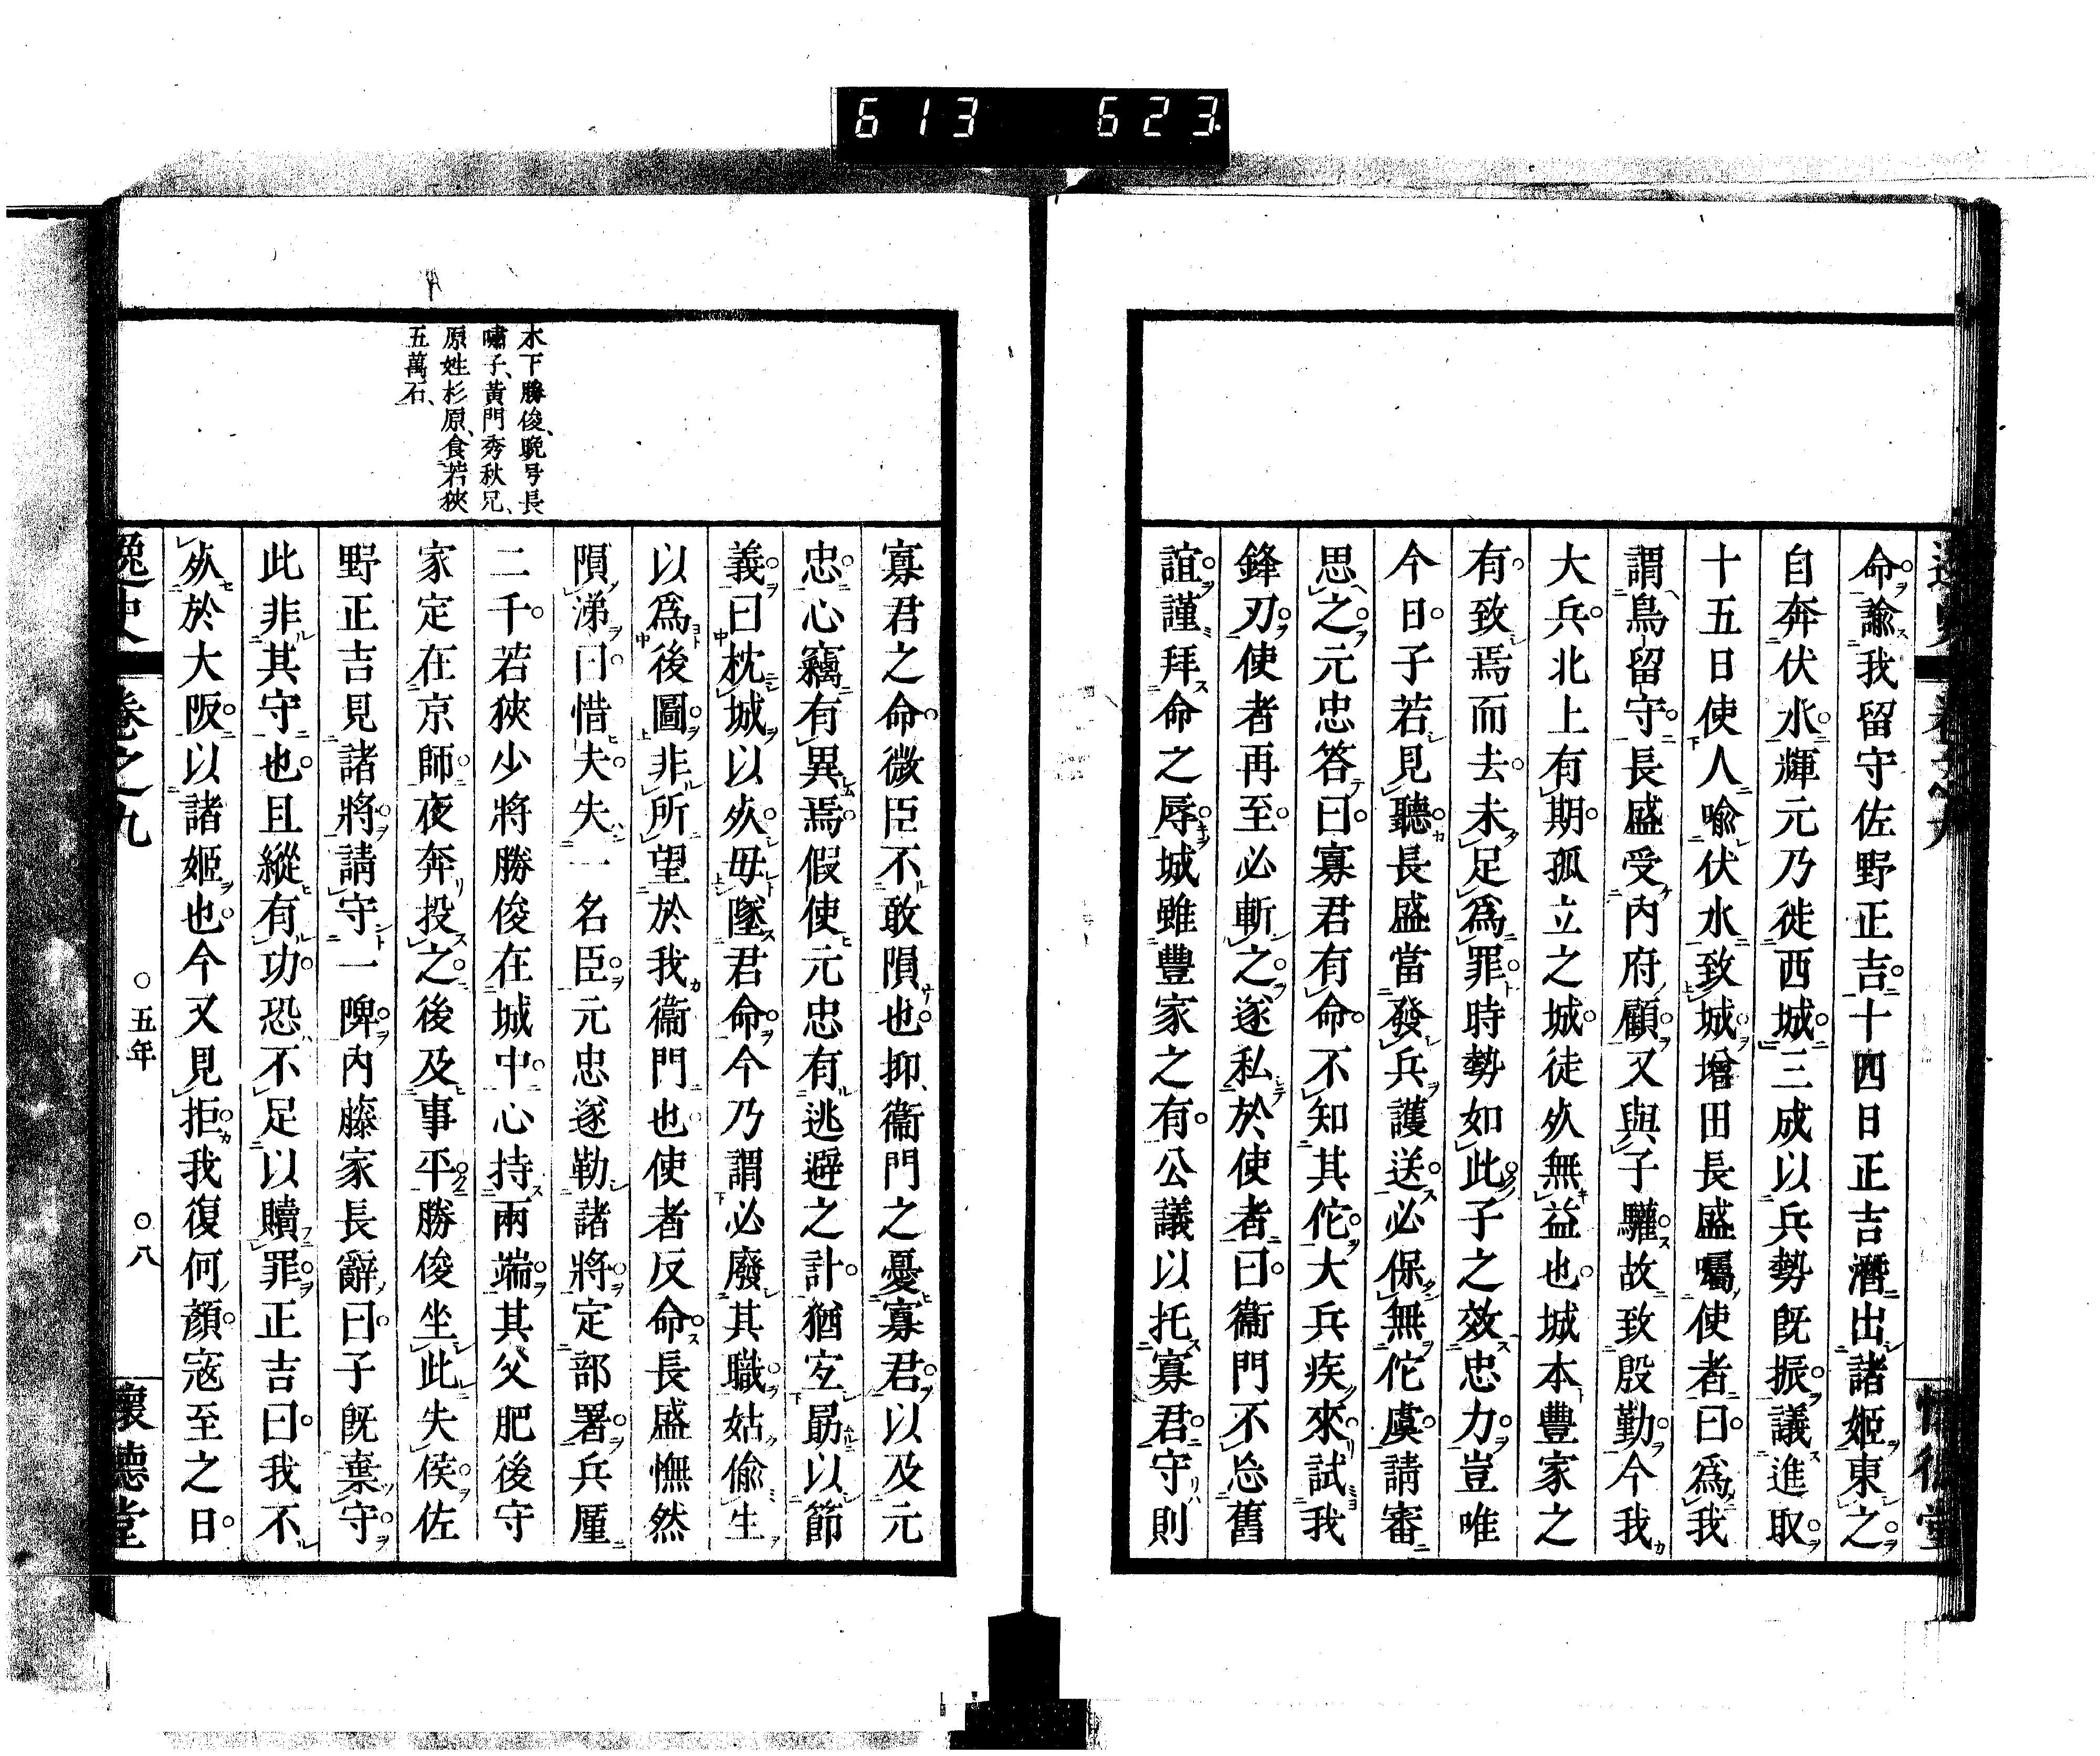 613 623.
命諭我留守佐野正吉十四日正吉潛出諸姬東之
自奔伏水輝元乃徙西城三成以兵勢既振議進取
十五日使人喩伏水致城增田長盛囑使者曰爲我
謂鳥留守長盛受內府顧又與子驩故致殷勤今我
大兵北上有期孤立之城徒㱙無益也城本豐家之
有致焉而去未足爲罪時勢如此子之效忠力豈唯
今日子若見聽長盛當發兵護送必保無佗虞請審
思之元忠答曰寡君有命不知其佗大兵疾來試我
鋒刃使者再至必斬之遂私於使者曰衞門不忘舊
誼謹拜命之辱城雖豐家之有公議以托寡君守則
寡君之命微臣不敢隕也抑衞門之憂寡君以及元
忠心竊有異焉假使元忠有逃避之計猶宐勗以節
義曰枕城以㱙毋墜君命今乃謂必廢其職姑偷生
以爲後圖非所望於我衞門也使者反命長盛憮然
隕涕曰惜夫失一名臣元忠遂勒諸將定部署兵厪
二千若狹少將勝俊在城中心持兩端其父肥後守
家定在京師夜奔投之後及事平勝俊坐此失侯佐
野正吉見諸將請守一陴內藤家長辭曰子既棄守
此非其守也且縱有功恐不足以贖罪正吉曰我不
㱙於大阪以諸姬也今又見拒我復何顏寇至之日
木下勝俊、晩号長
嘯子、黃門秀秋兄、
原姓杉原、食若狹
五萬石、
逸史 卷之九 ○五年 ○八 懷德堂